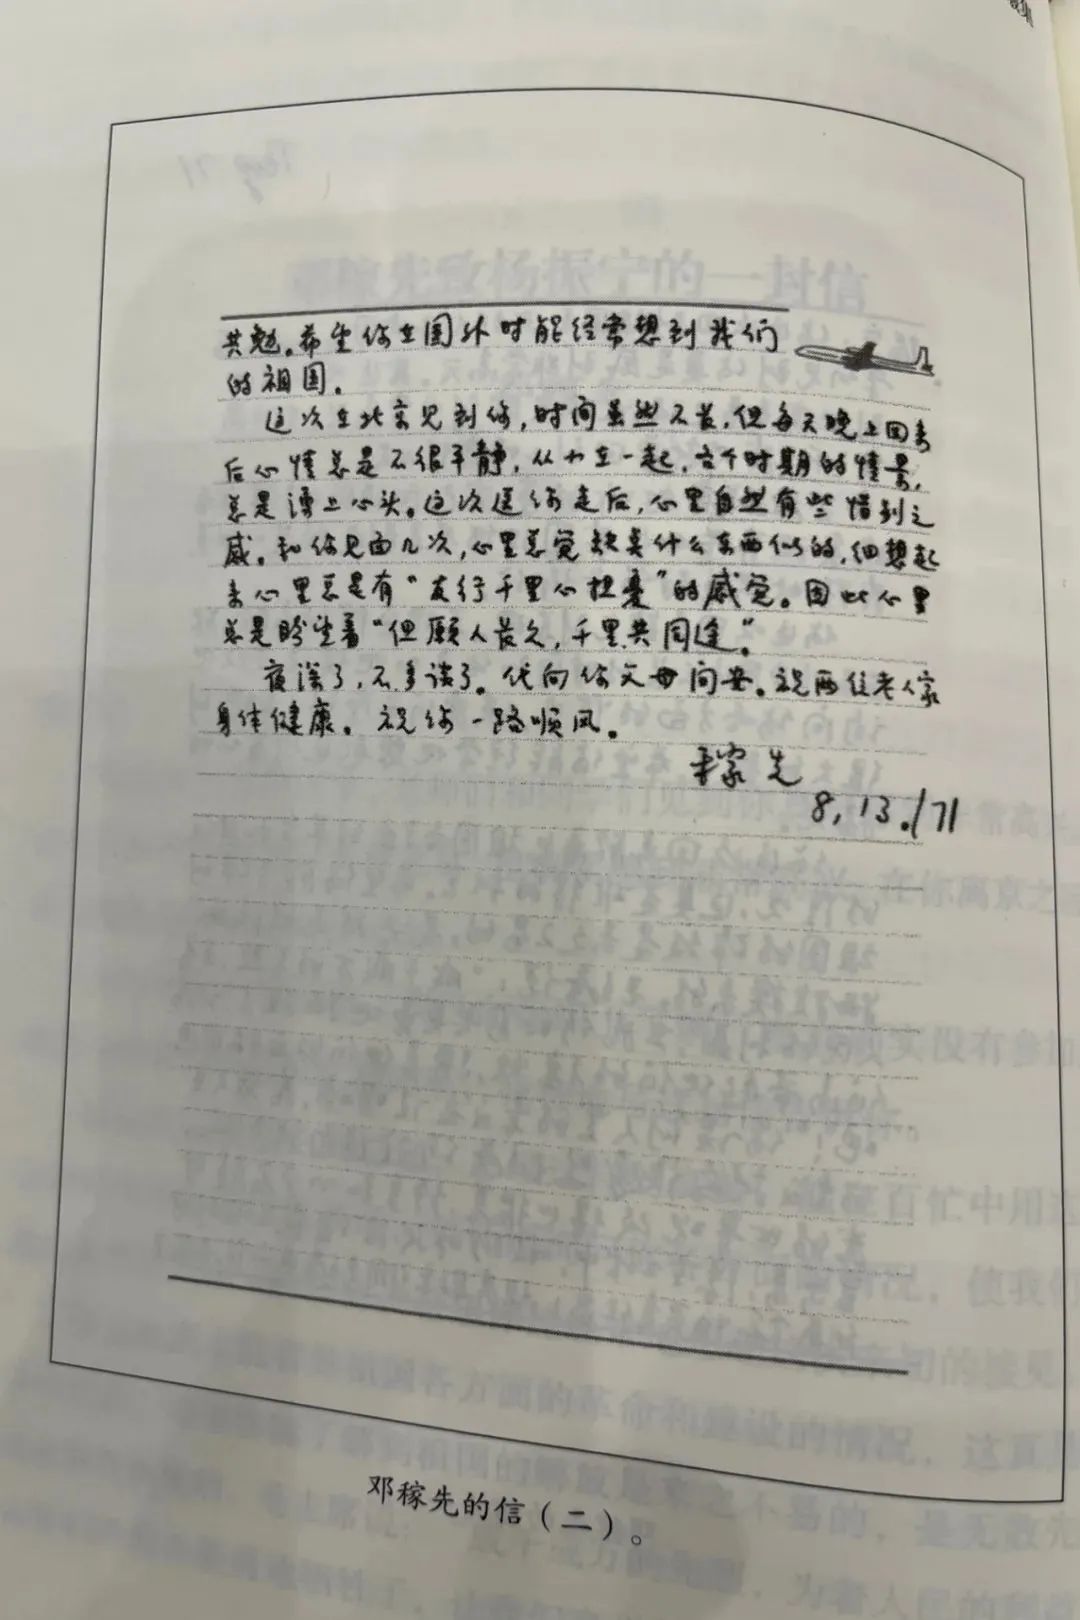 共勉。希望你在国外时能经常想到我们
的祖国。
这次在北京见到你，时间虽然不长，但每天晚上回来
后心情总是不很平静，从小在一起，各个时期的情景，
总是涌上心头。这次送你走后，心里自然有些惜别之
感。和你见面几次，心里总觉缺点什么东西似的，细想起
来心里总是有“友行千里心担忧”的感觉。因此心里
总是盼望着“但愿人长久，千里共同途。”
夜深了，不多谈了。代向你父母问安。祝两位老人家
身体健康。祝你一路顺风。
稼先
8, 13./71
邓稼先的信（二）。